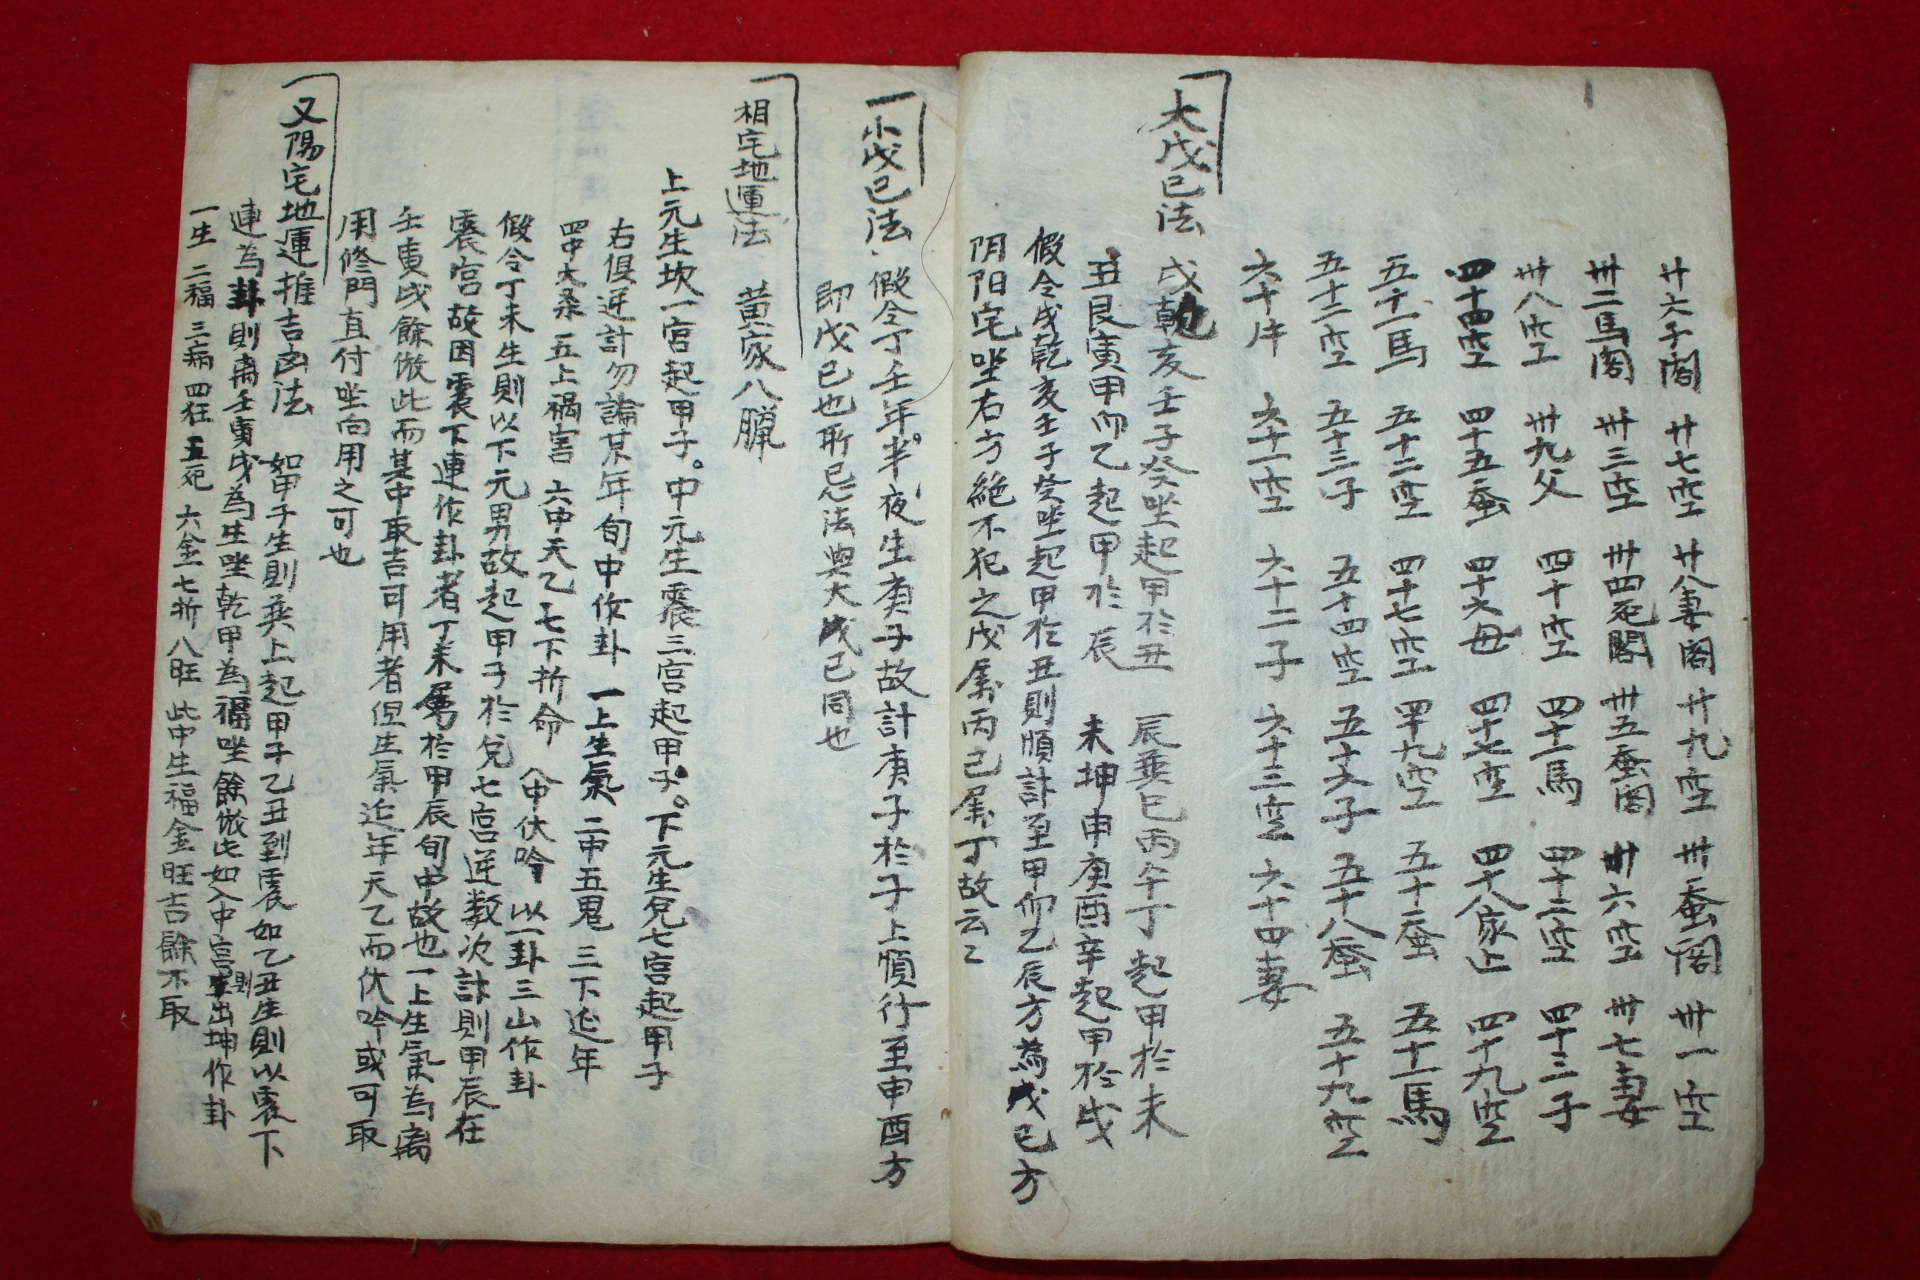 廿六子閣 廿七空 廿八妻閣 廿九空 卅蚕閣 卅一空
卅二馬閣 卅三空 卅四死閣 卅五蚕閣 卅六空 卅七妻
卅八空 卅九父 四十空 四十一馬 四十二空 四十三子
四十四空 四十五蚕 四十六母 四十七空 四十八家上 四十九空
五十一馬 五十二空 四十七空 四十九空 五十蚕 五十一馬
五十二空 五十三子 五十四空 五十六子 五十八蚕 五十九空
六十牛 六十一空 六十二子 六十三空 六十四妻
大戊己法 戌乾亥壬子癸坐起甲於丑 辰巽巳丙午丁起甲於未
丑艮寅甲卯乙起甲於辰 未坤申庚酉辛起甲於戌
假令戌乾亥壬子癸坐起甲於丑則順計至甲卯乙辰方為戊己方
阴阳宅坐右方絶不犯之戊属丙己属丁故云々
一小戊己法 假令丁壬年半夜生庚子故計庚子於子上順行至申酉方
即戊己也所忌法與大戊己同也
相宅地運法 黄家八關
上元生坎一宮起甲子。中元生震三宮起甲子。下元生兌七宮起甲子
右俱逆計勿論某年旬中作卦 一上生氣 二中五鬼 三下延年
四中六柔 五上禍害 六中天乙 七下折命 八中伏吟 以一卦三山作卦
假令丁未生則以下元男故起甲子於兌七宮逆数次計則甲辰在
震宮故因震下連作卦者丁未属於甲辰旬中故也一上生氣為离
壬寅戌餘倣此而其中取吉可用者但生氣延年天乙而伏吟或可取
用修門直付坐向用之可也
又陽宅地運推吉凶法 如甲子生則巽上起甲子乙丑到震如乙丑生則以震下
連為卦則离壬寅戌為生坐乾甲為福坐餘倣此如入中宮則出坤作卦
一生 二福 三病 四狂 五死 六金 七折 八旺 此中生福金旺吉餘不取